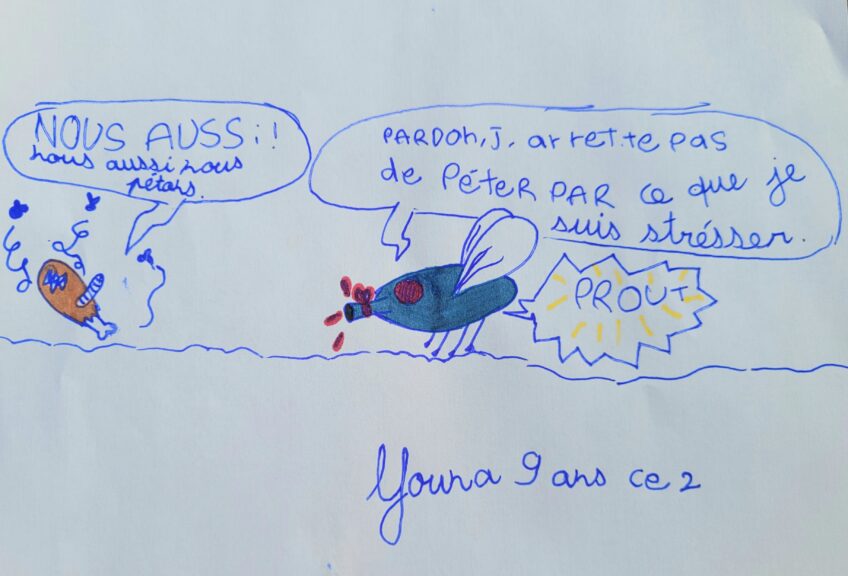 NOUS AUSSi!
nous aussi nous
pétons.
PARDON, J, arrette pas
de PéteR PAR ce que je
suis strésser.
PROUT
Youna 9 ans ce2